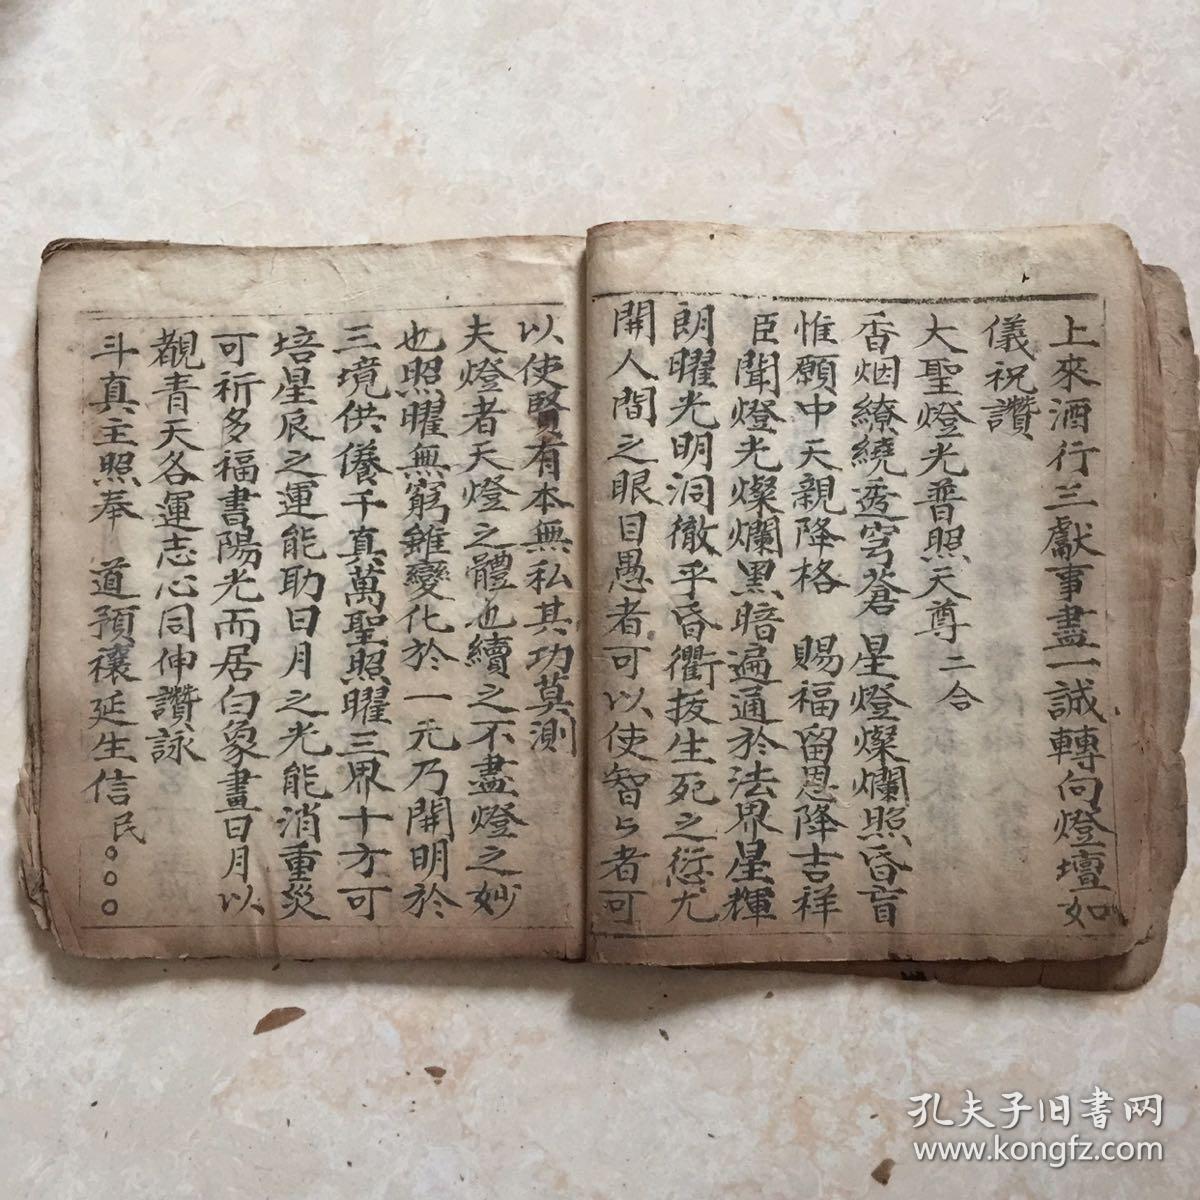 上來酒行三獻事盡一誠轉向燈壇如
儀祝讚
大聖燈光普照天尊二合
香烟繚繞透穹蒼 星燈燦爛照昏盲
惟願中天親降格 賜福留恩降吉祥
臣聞燈光燦爛黑暗遍通於法界星輝
朗曜光明洞徹乎昏衢拔生死之愆尤
開人間之眼目愚者可以使智与者可
以使賢有本無私其功莫測
夫燈者天燈之體也續之不盡燈之妙
也照曜無窮雖變化於一元乃開明於
三境供儀千真萬聖照曜三界十方可
培星辰之運能助日月之光能消重災
可祈多福書陽光而居白象畫日月以
觀青天各運志心同伸讚詠
斗真主照奉 道預禳延生信民○○○
孔夫子旧书网
www.kongfz.com